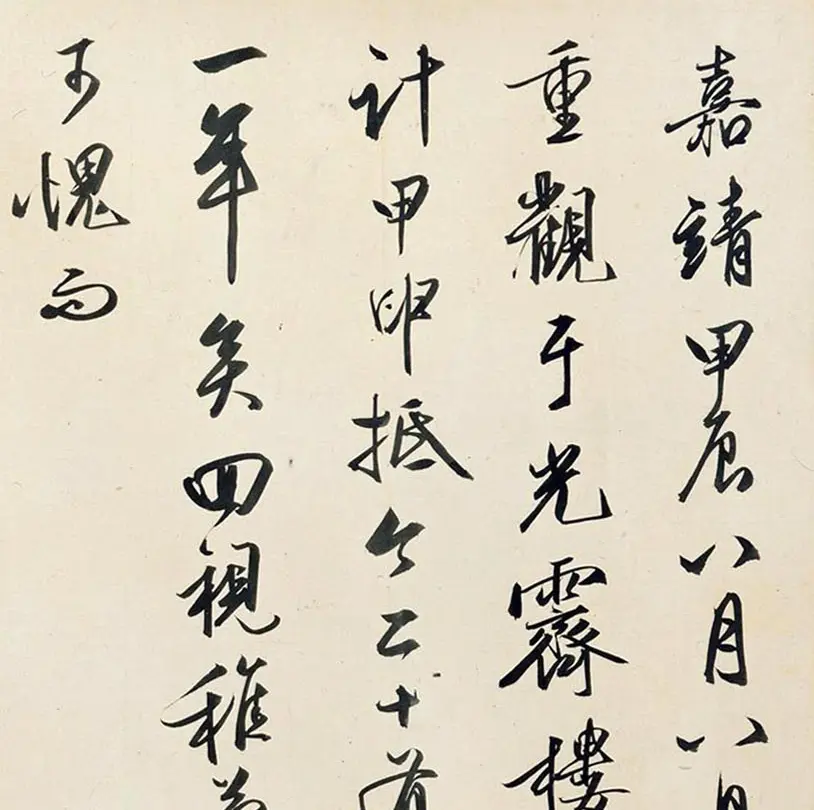 嘉靖甲辰八月八日
重觀于光霽樓
計甲申抵今二十
一年矣回視稚
可愧